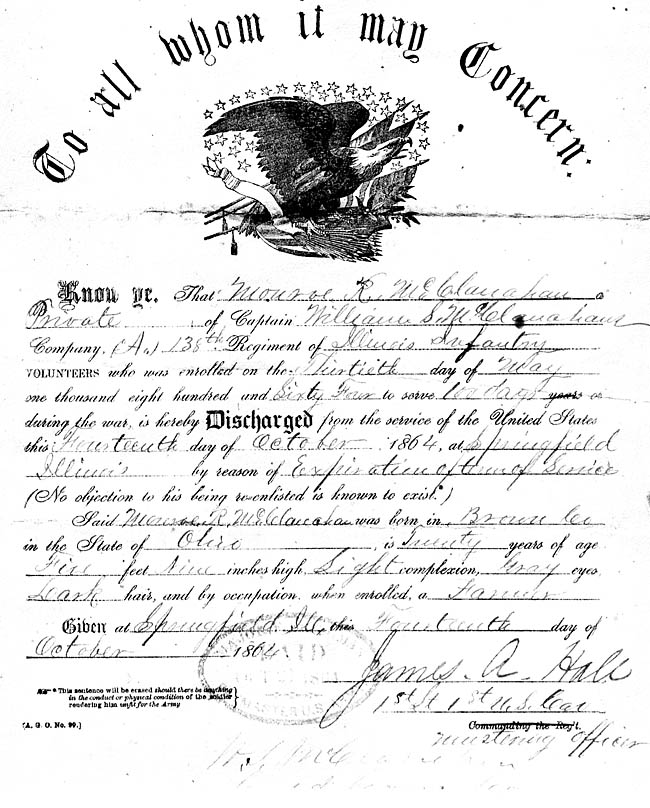 To all whom it may Concern:
Know ye, That Monroe R. McClanahan a
Private of Captain William S. McClanahans
Company, (A,) 138th Regiment of Illinois Infantry
VOLUNTEERS who was enrolled on the Thirtieth day of May
one thousand eight hundred and Sixty Four to serve 100 days years or
during the war, is hereby Discharged from the service of the United States
this Fourteenth day of October 1864, at Springfield
Illinois by reason of Expiration of term of Service
(No objection to his being re-enlisted is known to exist.*)
Said Monroe R. McClanahan was born in Brown Co
in the State of Ohio, is Twenty years of age
Five feet Nine inches high, Light complexion, Gray eyes,
Dark hair, and by occupation, when enrolled, a Farmer
Given at Springfield Ill, this Fourteenth day of
October 1864.
James. A Hall
1st Lt 1st U.S. Cav
Commanding the Reg't.
mustering officer
* This sentence will be erased should there be anything
in the conduct or physical condition of the soldier
rendering him unfit for the Army
[A. G. O. No. 99.]